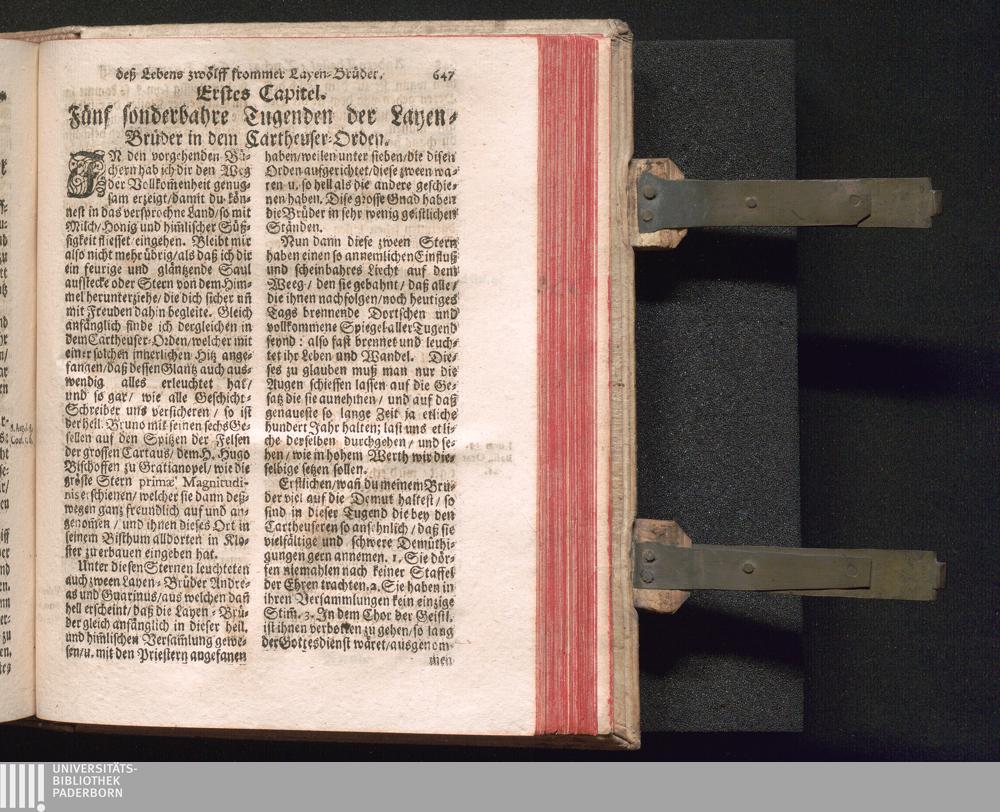 deß Lebens zwölff frommer Layen-Brüder. 647
Erstes Capitel.
Fünf sonderbahre Tugenden der Layen-
Brüder in dem Cartheuser-Orden.
IN den vorgehenden Bü-
chern hab ich dir den Weg
der Vollkom̃enheit genug-
sam erzeigt/damit du kön-
nest in das versprochne Land/so mit
Milch/Honig und him̃lischer Süß-
sigkeit fliesset/eingehen. Bleibt mir
also nicht mehr übrig/als daß ich dir
ein feurige und gläntzende Saul
aufstecke oder Stern von dem Him-
mel herunterziehe/die dich sicher uñ
mit Freuden dahin begleite. Gleich
anfänglich finde ich dergleichen in
dem Cartheuser-Orden/welcher mit
einer solchen innerlichen Hitz ange-
fangen/daß dessen Glantz auch aus-
wendig alles erleuchtet hat/
und so gar/ wie alle Geschicht-
Schreiber uns versicheren/ so ist
der heil. Bruno mit seinen sechs Ge-
sellen auf den Spitzen der Felsen
der grossen Cartaus/dem H. Hugo
Bischoffen zu Gratianopel/wie die
gröste Stern primæ Magnitudi-
nis erschienen/welcher sie dann deß-
wegen ganz freundlich auf und an-
genom̃en/und ihnen dieses Ort in
seinem Bisthum alldorten in Klo-
ster zu erbauen eingeben hat.
Unter diesen Sternen leuchteten
auch zween Layen-Brüder Andre-
as und Guarinus/aus welchen dañ
hell erscheint/daß die Layen-Brü-
der gleich anfänglich in dieser heil.
und him̃lischen Versam̃lung gewe-
sen/u. mit den Priestern angefanen
haben/weilen unter sieben/die disen
Orden aufgerichtet/diese zween wa-
ren u. so hell als die andere geschie-
nen haben. Dise grosse Gnad haben
die Brüder in sehr wenig geistlichen
Ständen.
Nun dann diese zween Stern
haben einen so annemlichen Einfluß
und scheinbahres Liecht auf dem
Weeg/den sie gebahnt/daß alle/
die ihnen nachfolgen/noch heutiges
Tags brennende Dortschen und
vollkommene Spiegel aller Tugend
seynd: also fast brennet und leuch-
tet ihr Leben und Wandel. Die-
ses zu glauben muß man nur die
Augen schiessen lassen auf die Ge-
satz die sie annehmen/ und auf daß
genaueste so lange Zeit ja etliche
hundert Jahr halten; last uns etli-
che derselben durchgehen/ und se-
hen/wie in hohem Werth wir die-
selbige setzen sollen.
Erstlichen/wañ du meinem Bru-
der viel auf die Demut haltest/ so
sind in dieser Tugend die bey den
Cartheuseren so ansehnlich/daß sie
vielfältige und schwere Demüthi-
gungen gern annemen. 1. Sie dör-
fen niemahlen nach keiner Staffel
der Ehren trachten. 2. Sie haben in
ihren Versammlungen kein einzige
Stim̃. 3. In dem Chor der Geistl.
ist ihnen verbotten zu gehen/so lang
der Gottesdienst wäret/ausgenom-
men
UNIVERSITÄTS-
BIBLIOTHEK
PADERBORN